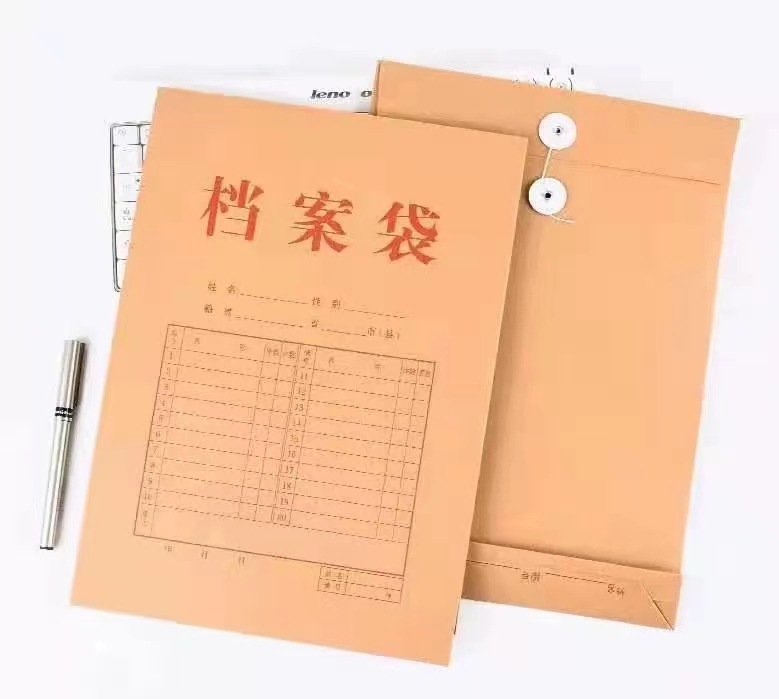 leno o
档案袋
姓名 性别
籍贯 省 市(县)
编号 名称 份数 页数 编号 名称 份数 页数
1 11
2 12
3 13
4 14
5 15
6 16
7 17
8 18
9 19
10 20
备注
年 月 日